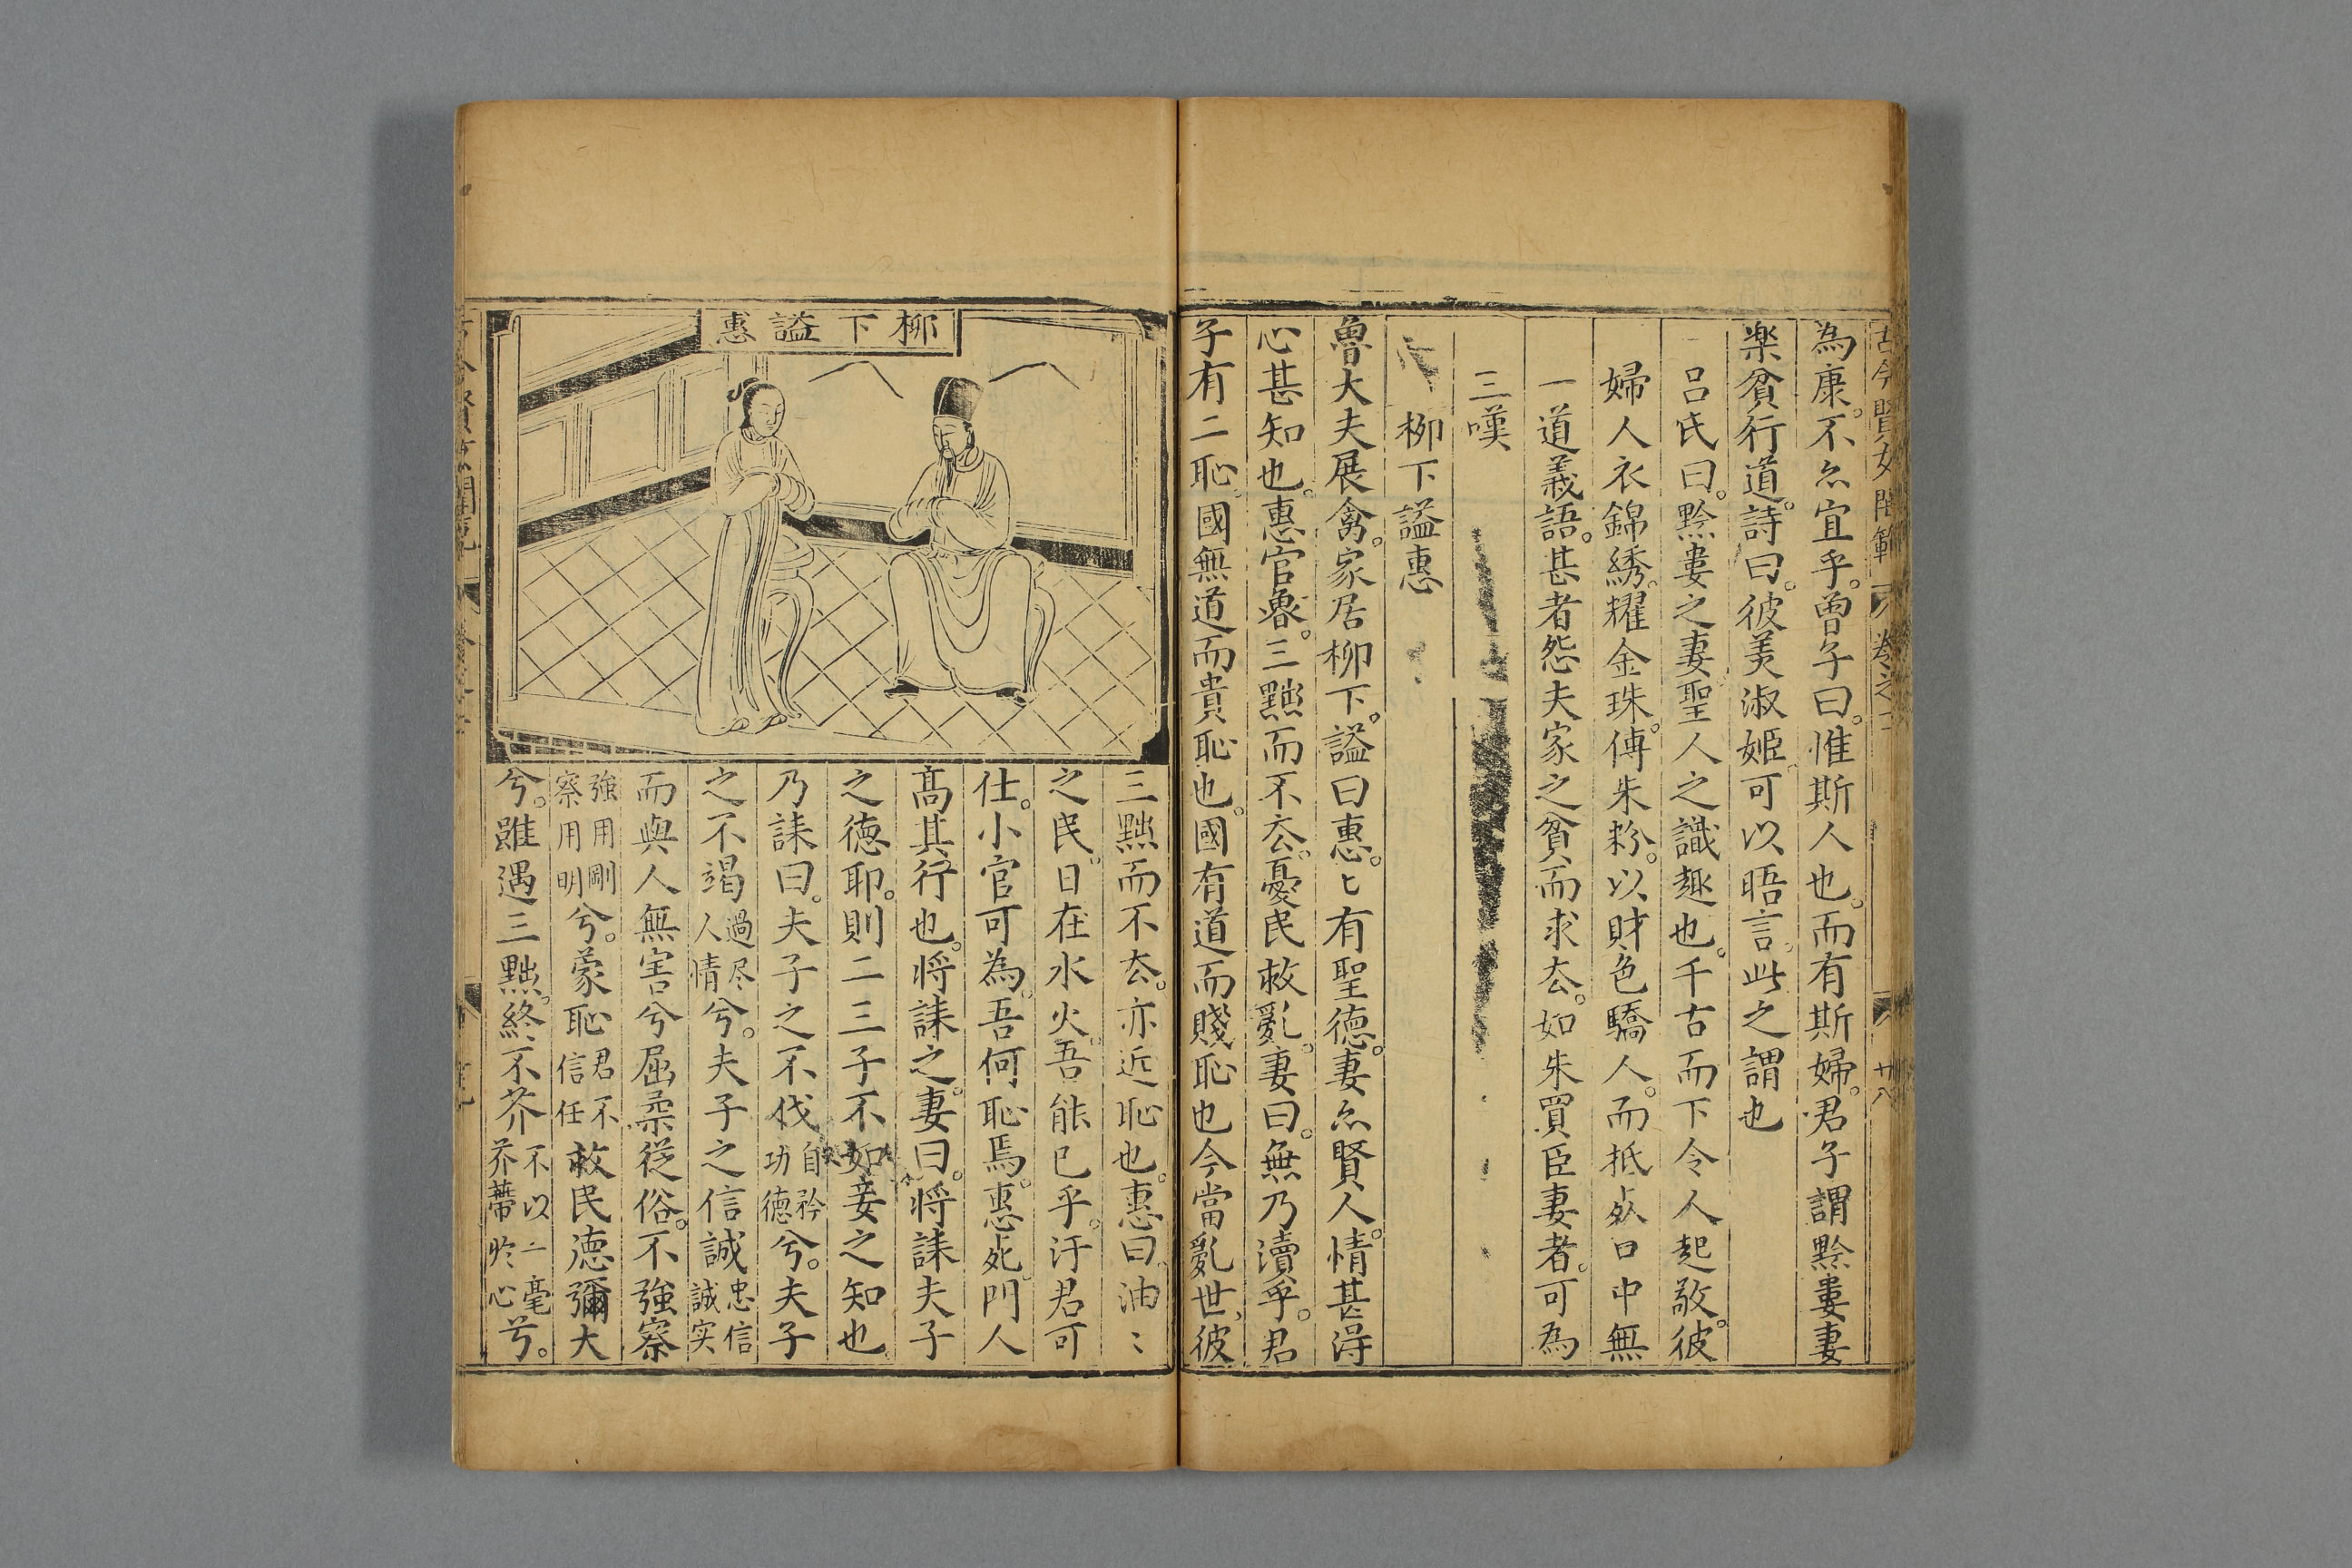 古今賢女閨範 卷之 廿八
為康。不亦宜乎。曾子曰。惟斯人也。而有斯婦。君子謂黔婁妻
楽貧行道。詩曰。彼美淑姬。可以晤言。此之謂也
呂氏曰。黔婁之妻聖人之識趣也。千古而下令人起敬。彼
婦人衣錦綉。耀金珠。傅朱粉。以財色驕人。而抵死口中無
一道義語。甚者怨夫家之貧而求去。如朱買臣妻者。可為
三嘆
柳下謚惠
魯大夫展禽。家居柳下。謚曰惠。〻有聖德。妻亦賢人。情甚得
心甚知也。惠官魯。三黜而不去。憂民救亂。妻曰。無乃瀆乎。君
子有二恥。國無道而貴恥也。國有道而賤恥也今當亂世。彼
柳下謚惠
三黜而不去。亦近恥也。惠曰。油〻
之民。日在水火。吾能已乎。汙君可
仕。小官可為。吾何恥焉。惠死。門人
高其行也。将誄之。妻曰。将誄夫子
之德耶。則二三子不如妾之知也。
乃誄曰。夫子之不伐自矜功德兮。夫子
之不竭過尽人情兮。夫子之信誠忠信誠实
而與人無害兮屈柔從俗。不強察
強用剛察用明兮。蒙恥君不信任救民德彌大
兮。雖遇三黜。終不芥不以一毫芥蔕於心兮。